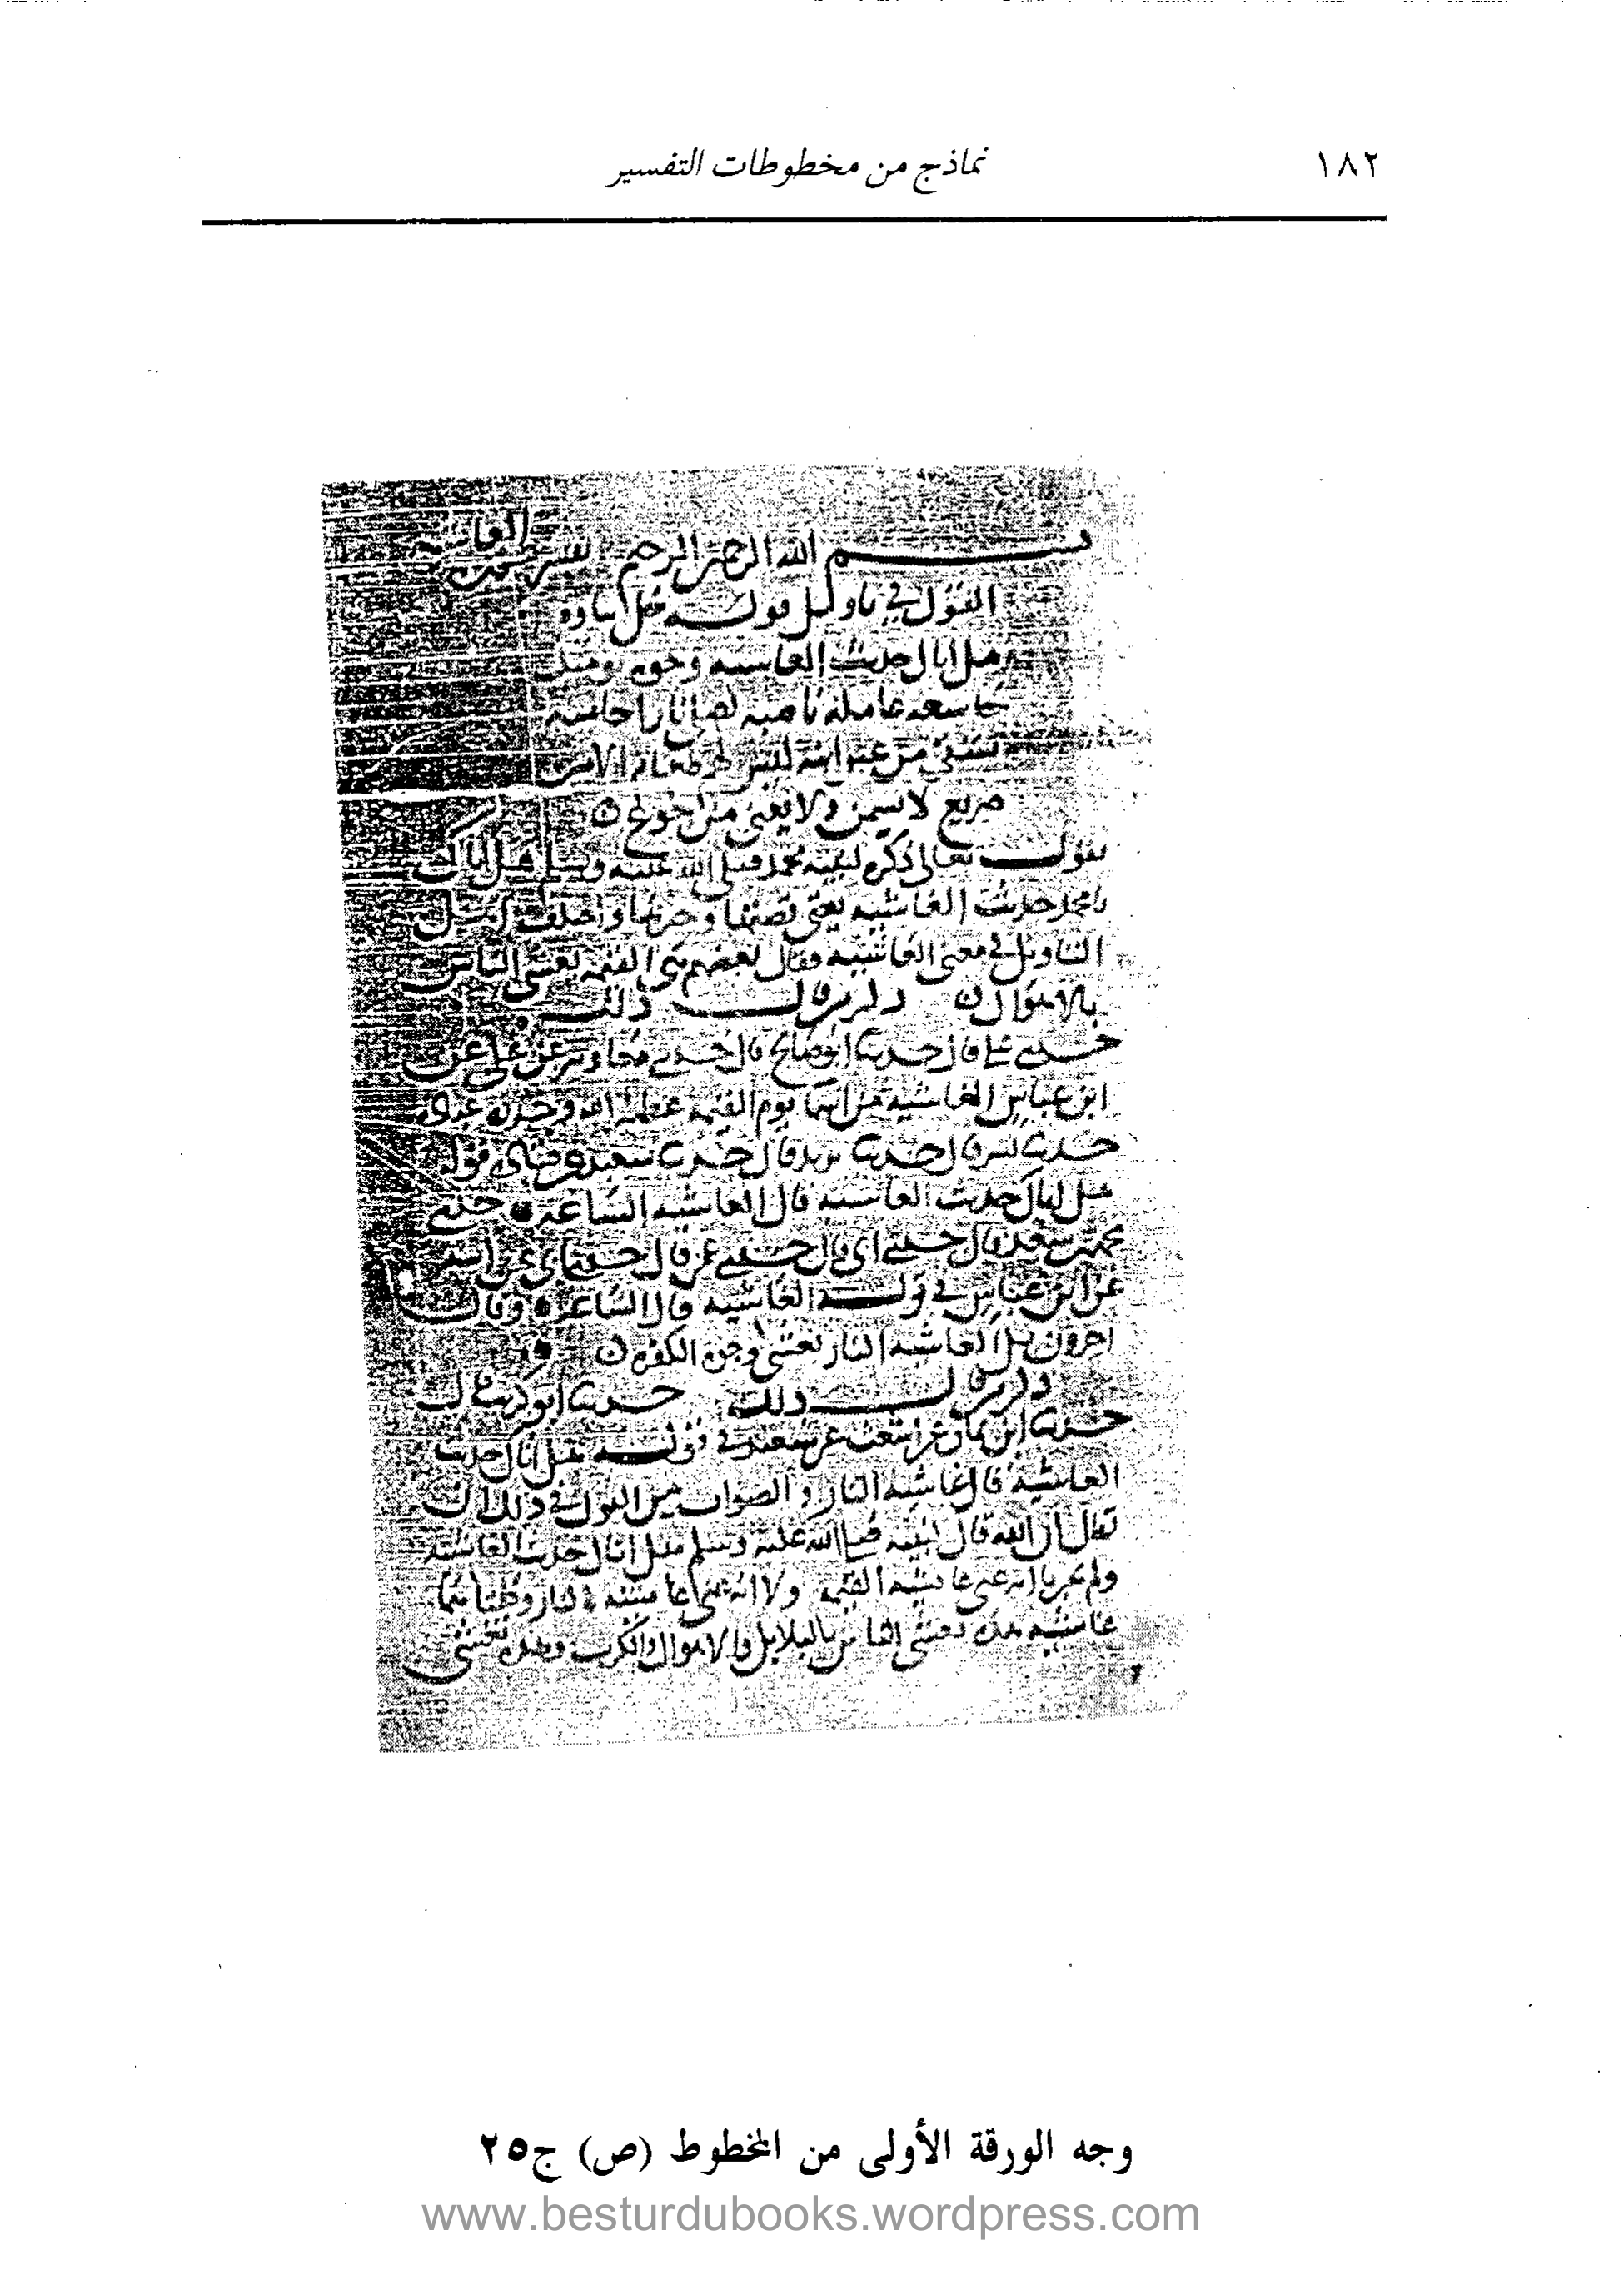 ١٨٢
نماذج من مخطوطات التفسير
بسم الله الرحمن الرحيم تفسير الغاشية
القول في تاويل قوله جل ثناوه
هل اتاك حديث الغاشيه وجوه يومئذ
خاشعه عامله ناصبه تصلى نارا حاميه
تسقى من عين انيه ليس لهم طعام الا من
ضريع لا يسمن ولا يغنى من جوع
يقول تعالى ذكره لنبيه محمد صلى الله عليه وسلم هل اتاك
يا محمد حديث الغاشيه يعنى قصتها وخبرها واختلف اهل
التاويل في معنى الغاشيه فقال بعضهم هى القيمه تغشى الناس
بالاهوال ذكر من قال ذلك
حدثنى على قال حدثنا ابو صالح قال حدثنى معاويه عن على عن
ابن عباس الغاشيه من اسما يوم القيمه عظمه الله وحذره عباده
حدثنا بشر قال حدثنا يزيد قال حدثنا سعيد عن قتاده قوله
هل اتاك حديث الغاشيه قال الغاشيه الساعه حدثنى
محمد بن سعد قال حدثنى ابى قال حدثنى عمى قال حدثنى ابى عن ابيه
عن ابن عباس في قوله الغاشيه قال الساعه وقال
اخرون بل الغاشيه النار تغشى وجوه الكفره
ذكر من قال ذلك حدثنا ابو كريب قال
حدثنا ابن يمان عن اشعث عن سعيد في قوله هل اتاك حديث
الغاشيه قال غاشيه النار والصواب من القول في ذلك ان
يقال ان الله قال لنبيه صلى الله عليه وسلم هل اتاك حديث الغاشيه
ولم يخبرنا انه عنى غاشيه القيمه ولا انه عنى غاشيه النار وكلتاهما
غاشيه هذه تغشى الناس بالبلابل والاهوال والكرب وهذه تغشى
وجه الورقة الأولى من المخطوط (ص) ج٢٥
www.besturdubooks.wordpress.com